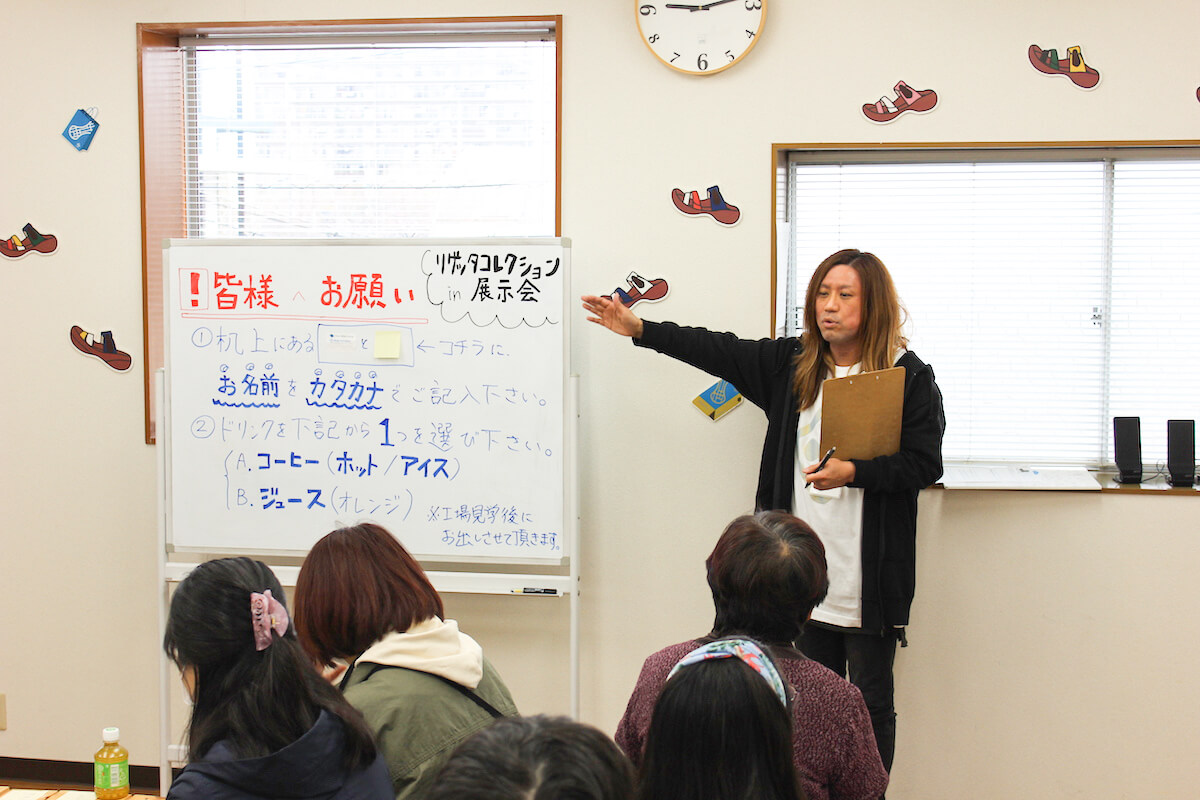 9
8
7
6
5
4
3
リゲッタコレクション
in 展示会
!皆様へ お願い
①机上にある と ←コチラに、
お名前をカタカナでご記入下さい。
②ドリンクを下記から1つを選び下さい。
A.コーヒー(ホット/アイス)
B.ジュース(オレンジ)
※工場見学後に
お出しさせて頂きます。